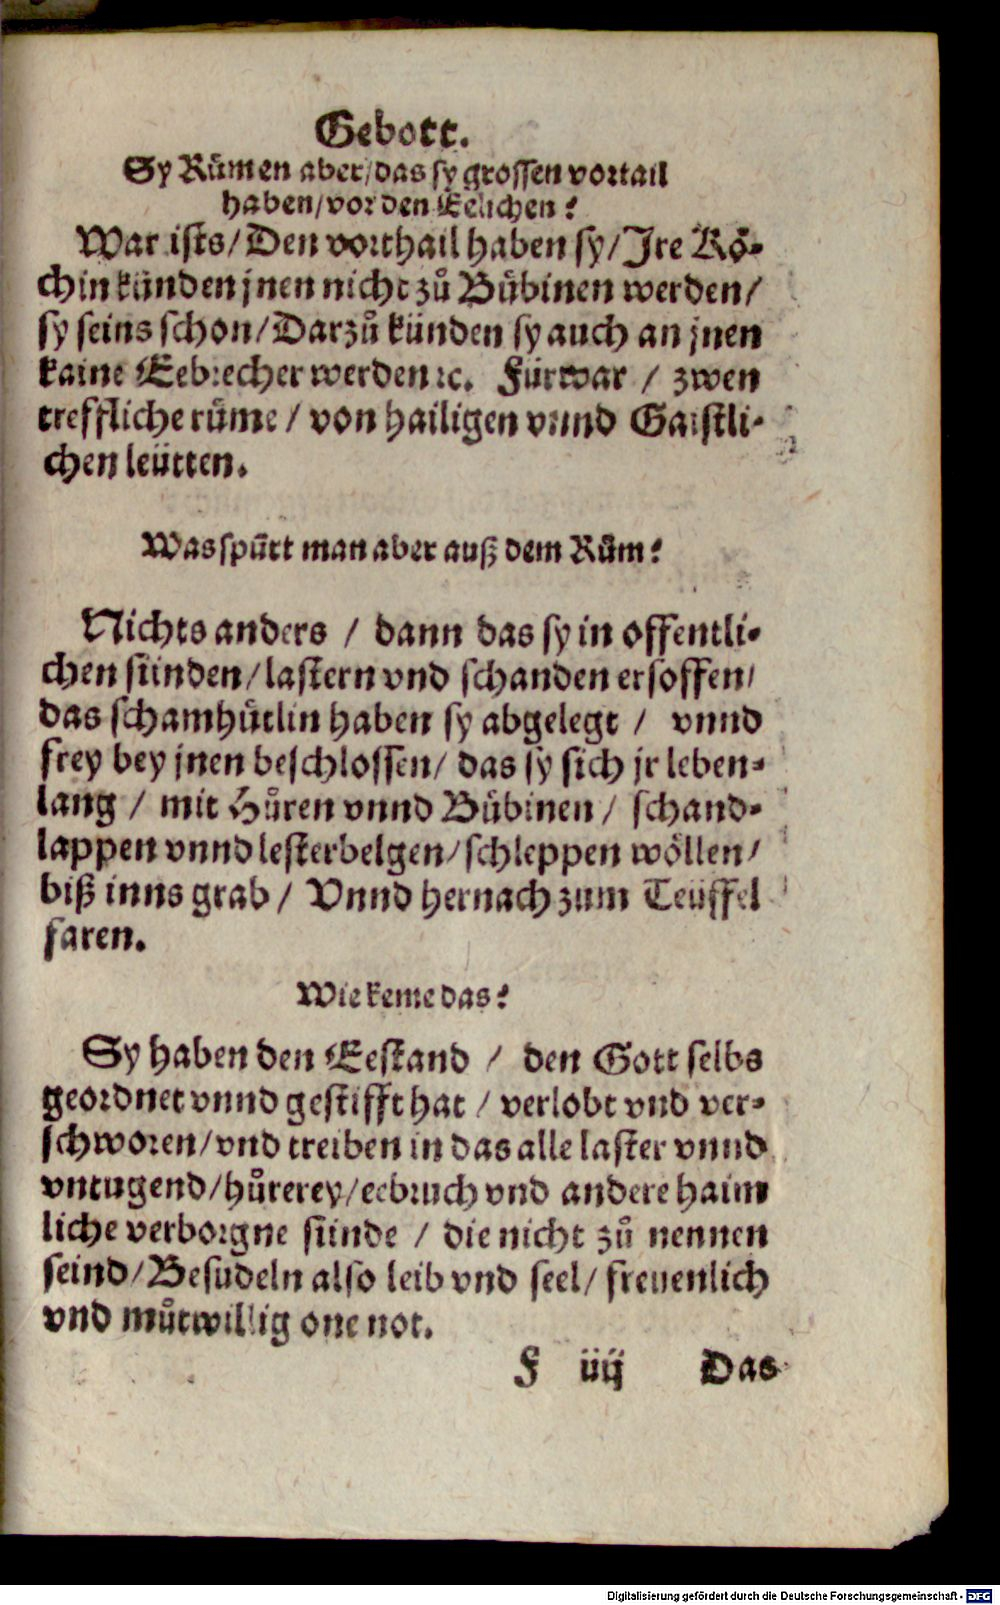 Gebott.
Sy Růmen aber/das sy grossen vortail
haben/vor den Eelichen?
War ists/Den vorthail haben sy/Jre Kö-
chin künden jnen nicht zů Bübinen werden/
sy seins schon/Darzů künden sy auch an jnen
kaine Eebrecher werden ꝛc. Fürwar / zwen
treffliche rüme / von hailigen vnnd Gaistli-
chen leütten.
Was spürt man aber auß dem Rům?
Nichts anders / dann das sy in offentli-
chen sünden/lastern vnd schanden ersoffen/
das schamhütlin haben sy abgelegt / vnnd
frey bey jnen beschlossen/ das sy sich jr leben-
lang / mit Hůren vnnd Bübinen / schand-
lappen vnnd lesterbelgen/schleppen wöllen/
biß inns grab / Vnnd hernach zum Teüffel
faren.
Wie keme das?
Sy haben den Eestand / den Gott selbs
geordnet vnnd gestifft hat / verlobt vnd ver-
schworen/vnd treiben in das alle laster vnnd
vntugend/hůrerey/eebruch vnd andere haim
liche verborgne sünde / die nicht zů nennen
seind/Besudeln also leib vnd seel/ freuenlich
vnd můtwillig one not.
F iiij Das
Digitalisierung gefördert durch die Deutsche Forschungsgemeinschaft - DFG